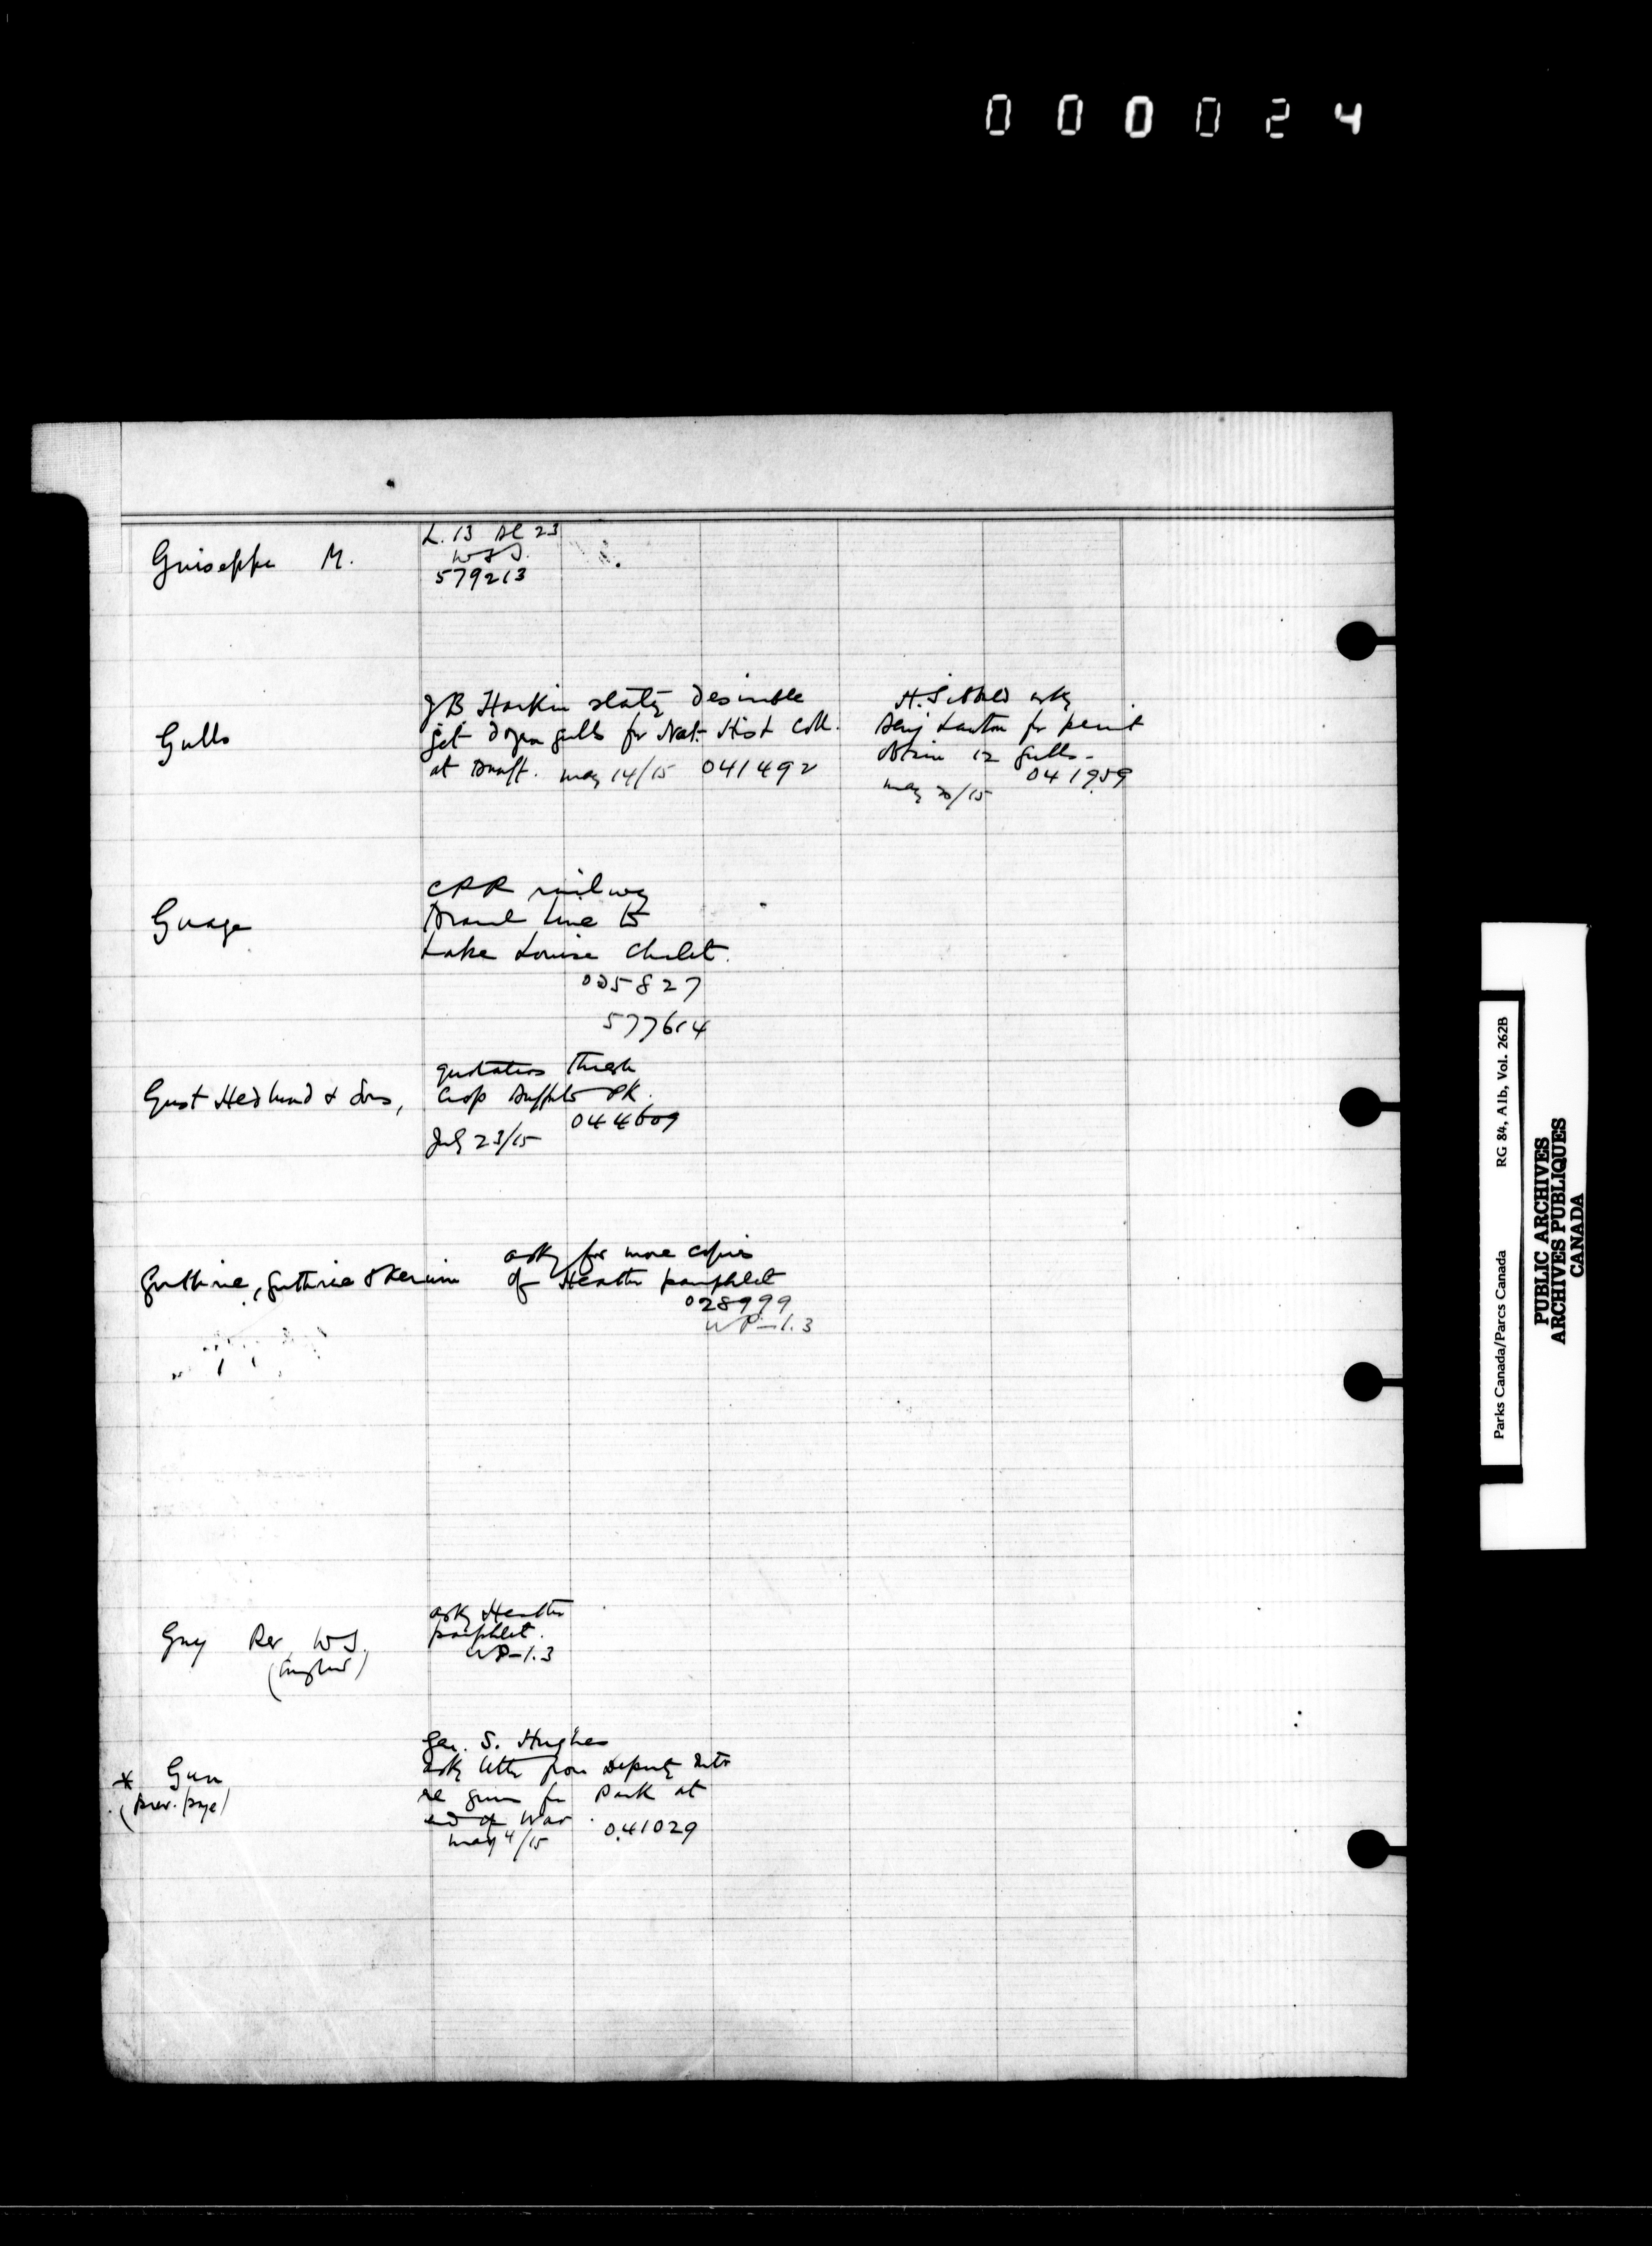 000024
Guiseppe M.
L. 13 Bl 23
579213
Gulls
JB Harkin stating desirable
get dozen gulls for Nat. Hist Coll.
at Banff. May 14/15 041492
H. Sibbald asks
Benj Lawton for permit
obtain 12 gulls -
041959
May 20/15
Guage
CPR railway
Branch Line to
Lake Louise Chalet.
025827
577614
Gust Hedlund & Sons,
quotations thresh
Crop Buffalo Pk.
044609
July 23/15
Guthrie, Guthrie & Kerwin
asks for more copies
of Heather pamphlet
028999
WP-1.3
Guy Rev. WJ.
(England)
asks Heather
pamphlet.
WP-1.3
* Gun
(prev. page)
Gen. S. Hughes
asks letter from Deputy Intr
re guns for Park at
end of War
May 4/15 041029
Parks Canada/Parcs Canada RG 84, A1b, Vol. 262B
PUBLIC ARCHIVES
ARCHIVES PUBLIQUES
CANADA